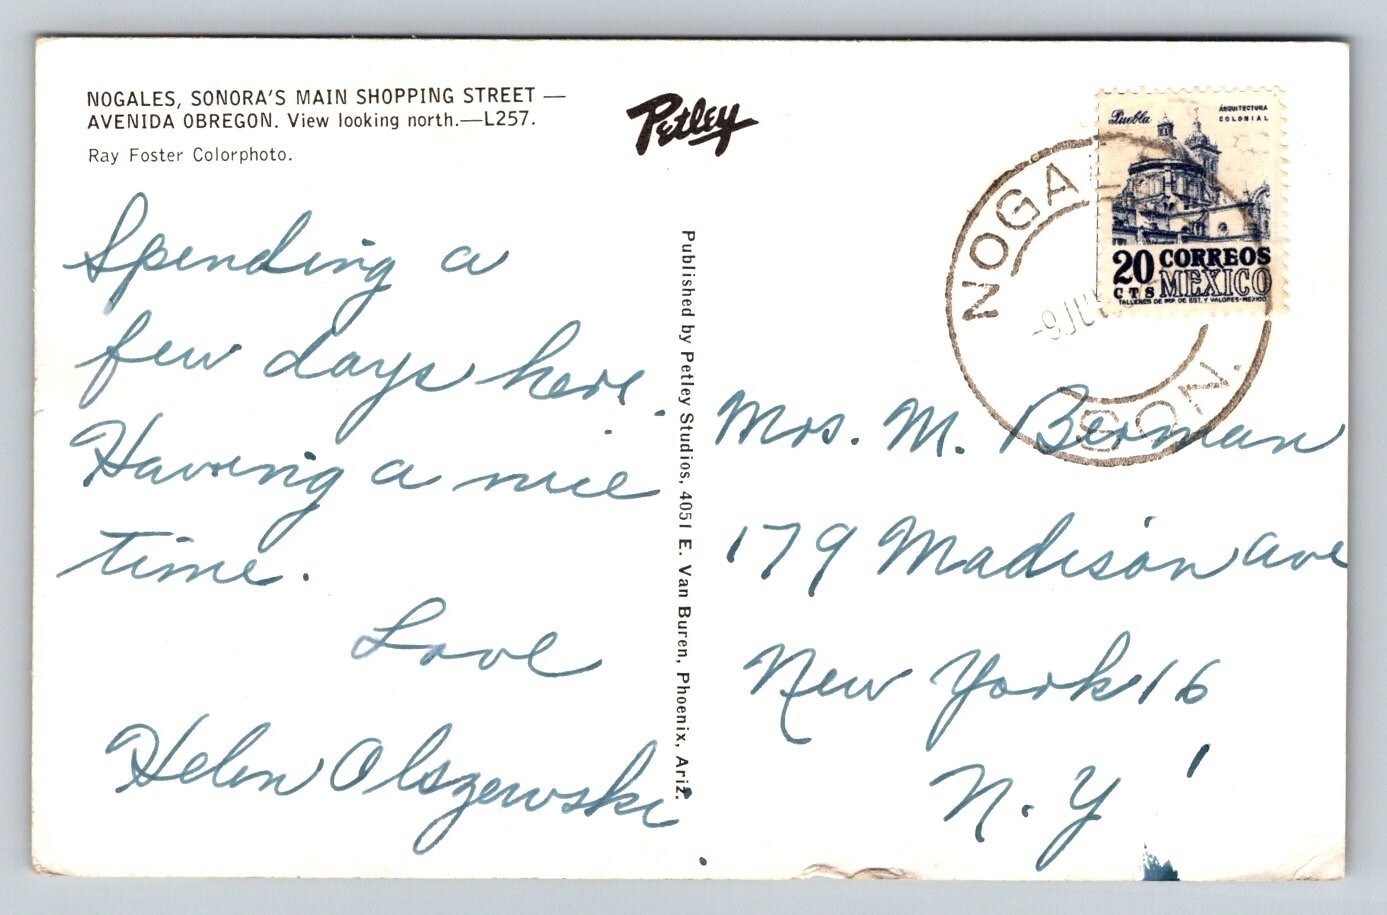 NOGALES, SONORA'S MAIN SHOPPING STREET —
AVENIDA OBREGON. View looking north.—L257.
Ray Foster Colorphoto.
Petley
Spending a
few days here.
Having a nice
time.
Love
Helen Olszewski
Published by Petley Studios, 4051 E. Van Buren, Phoenix, Ariz.
Puebla
ARQUITECTURA
COLONIAL
20 CTS
CORREOS
MEXICO
TALLERES DE IMP. DE EST. Y VALORES-MEXICO
NOGA
SON.
Mrs. M. Berman
179 Madison Ave
New York 16
N.Y